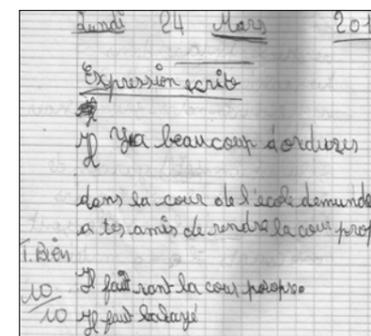 Lundi 24 Mars 201
Expression ecrite
Il Ya beaucoup d'orduzes
dans la cour de l'école demunde
a tes amis de rendre la cour prop
T. Bien
10/10
Il faut rant la cour propore
Il faut balayé